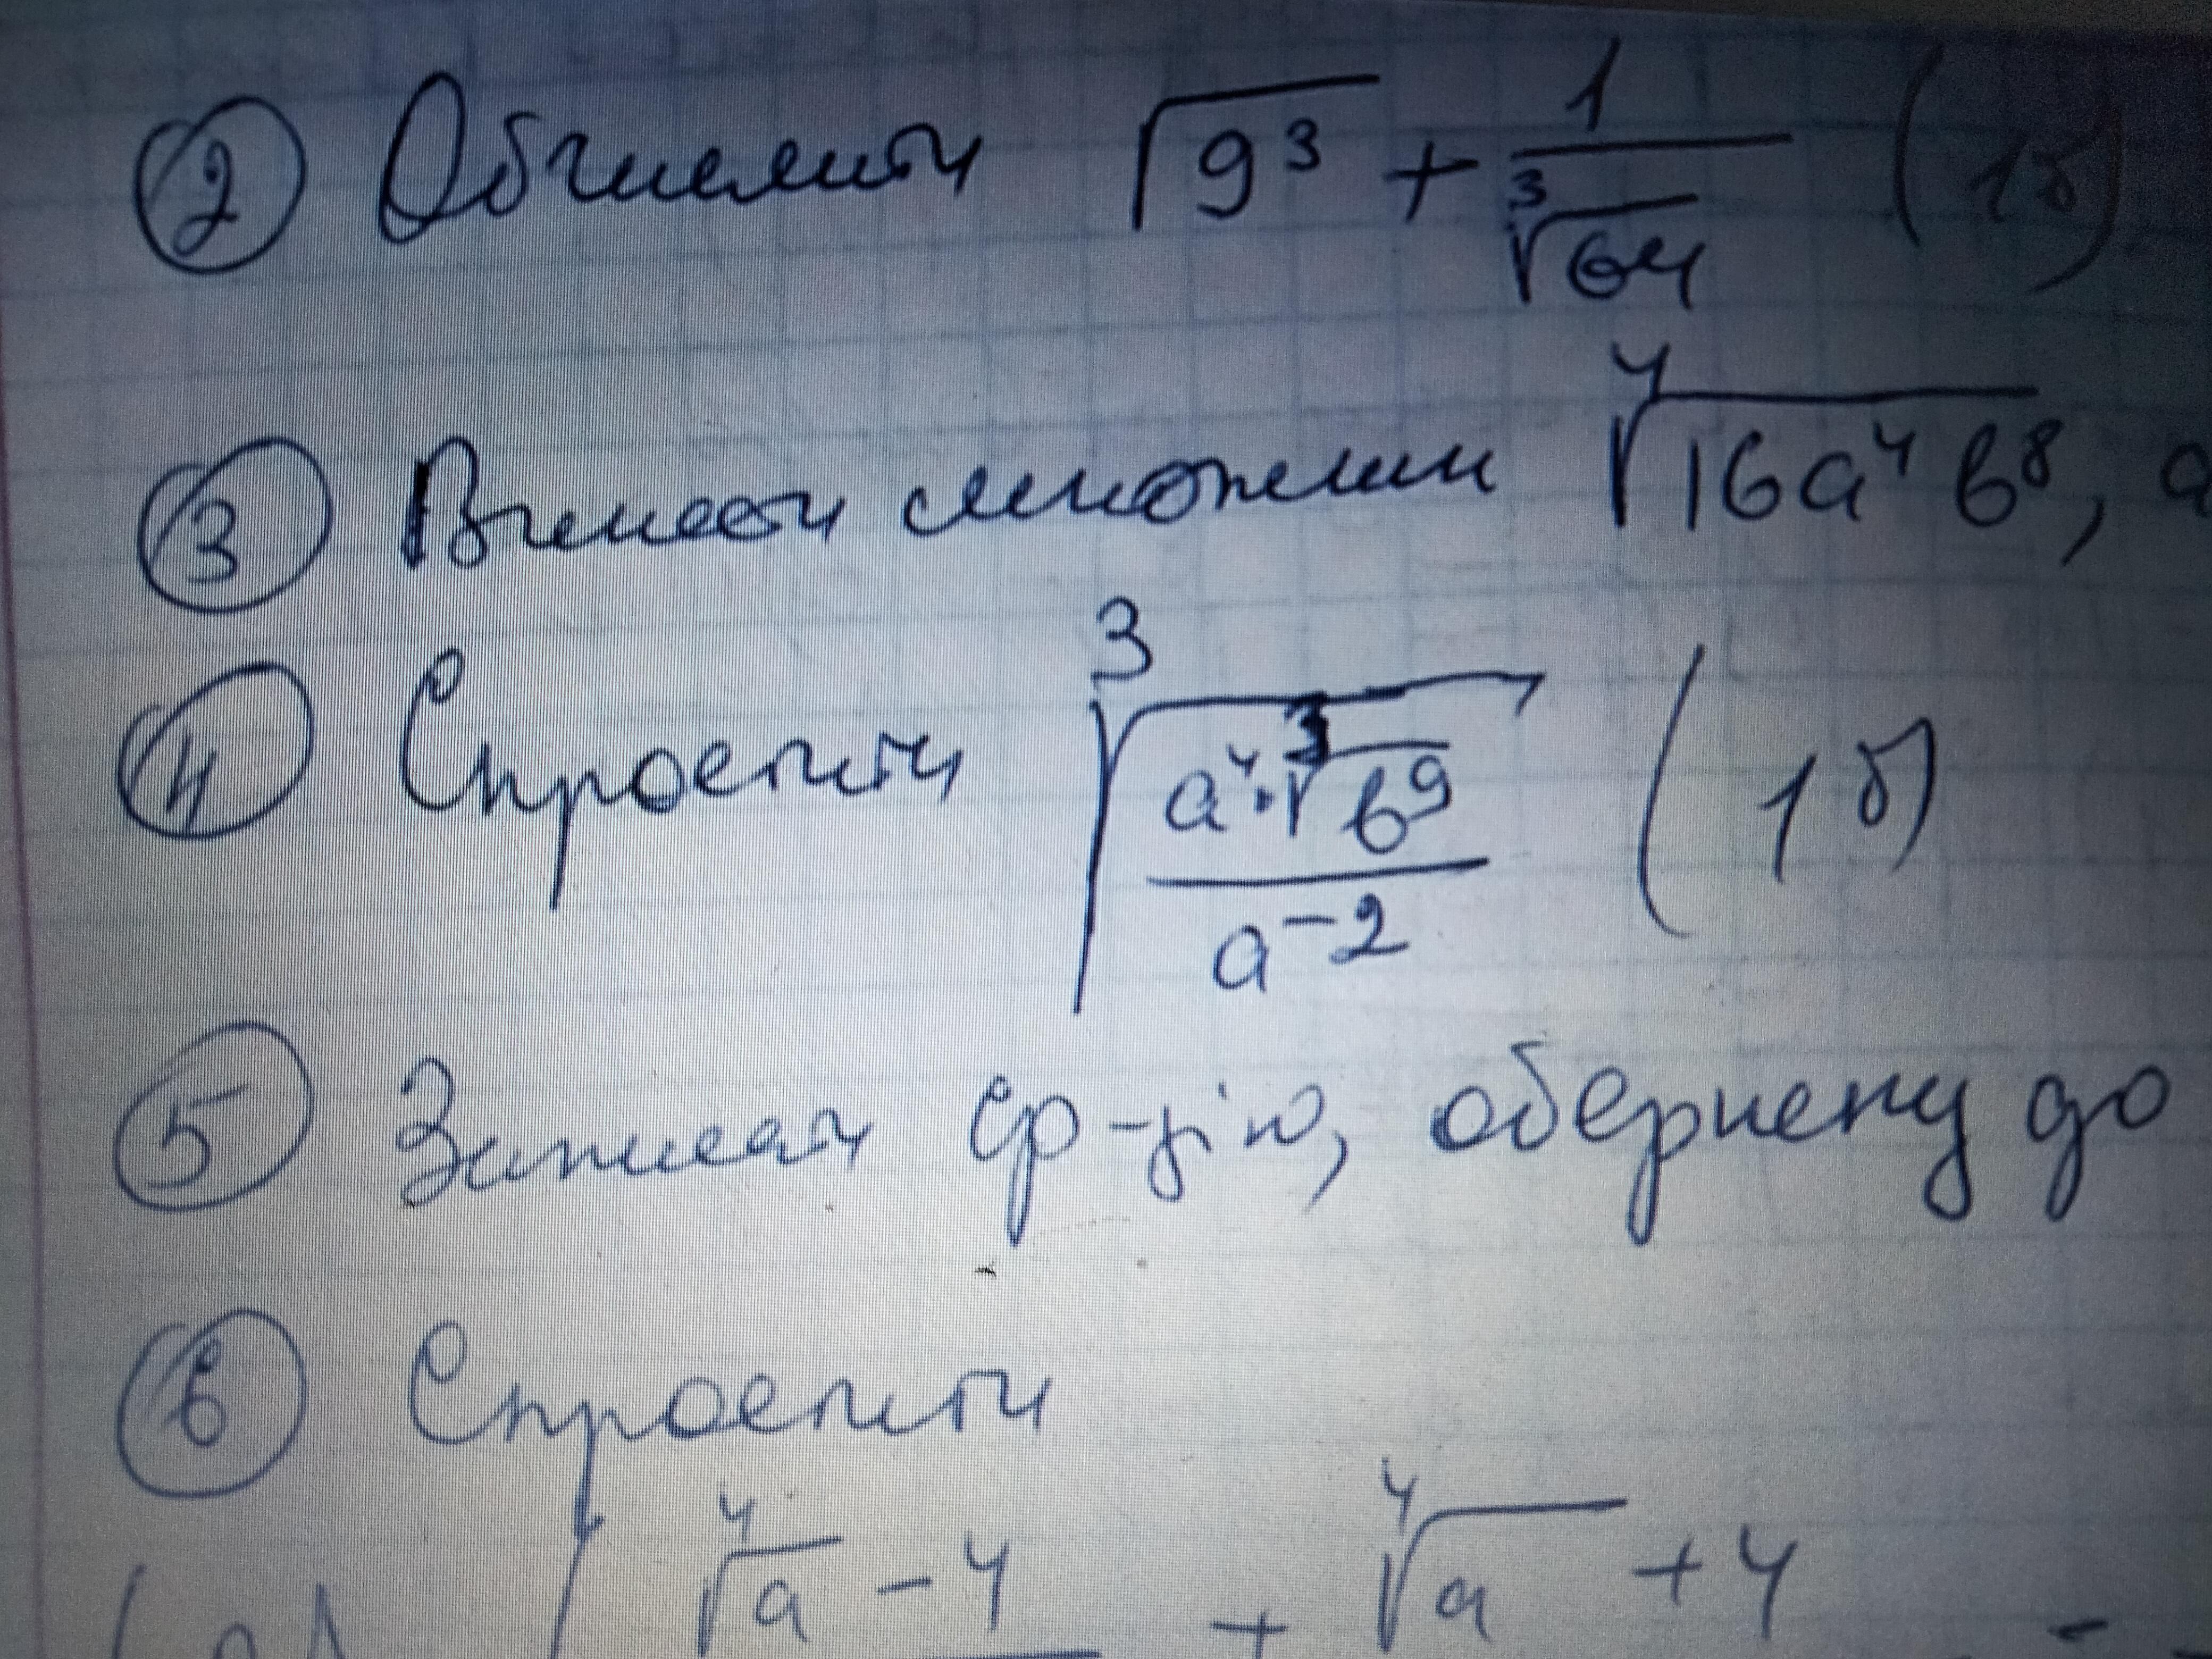 2 Обчислити √9³ + 1/∛64 (1б)
3 Винести множник ⁴√16a⁴b⁸, a
4 Спростити ∛(a⁴·∛b⁹ / a⁻²) (1б)
5 Записати ф-цію, обернену до
6 Спростити
⁴√a - 4 + ⁴√a + 4 -